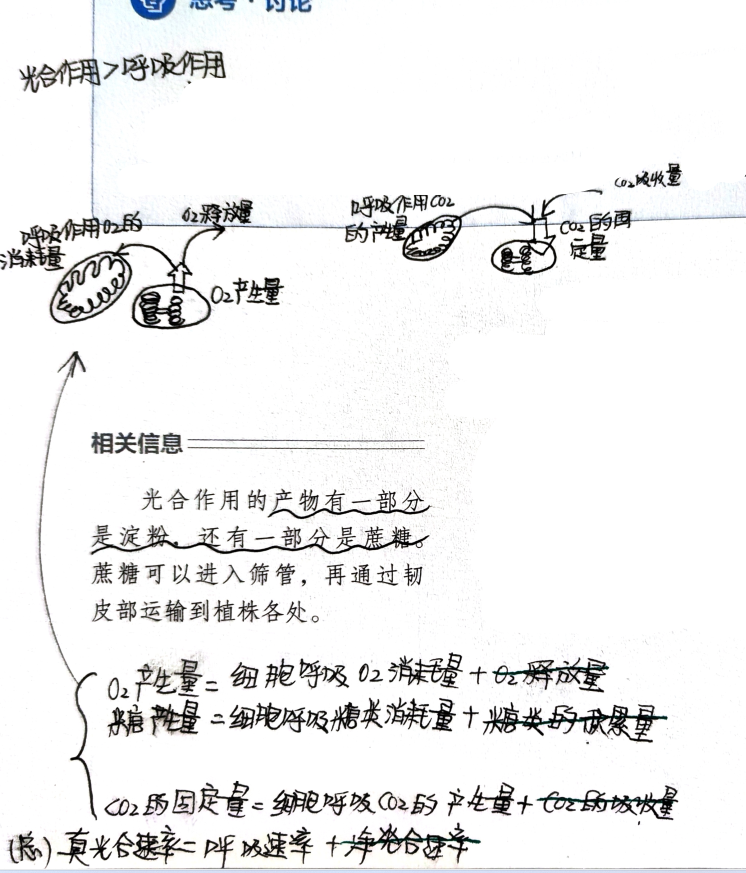 思考·讨论
光合作用>呼吸作用
呼吸作用O2的
消耗量
O2释放量
O2产生量
呼吸作用CO2
的产生量
CO2吸收量
CO2的固
定量
相关信息
光合作用的产物有一部分
是淀粉，还有一部分是蔗糖。
蔗糖可以进入筛管，再通过韧
皮部运输到植株各处。
O2产生量=细胞呼吸O2消耗量+O2释放量
糖产生量=细胞呼吸糖类消耗量+糖类的积累量
CO2的固定量=细胞呼吸CO2的产生量+CO2的吸收量
(总)真光合速率=呼吸速率+净光合速率